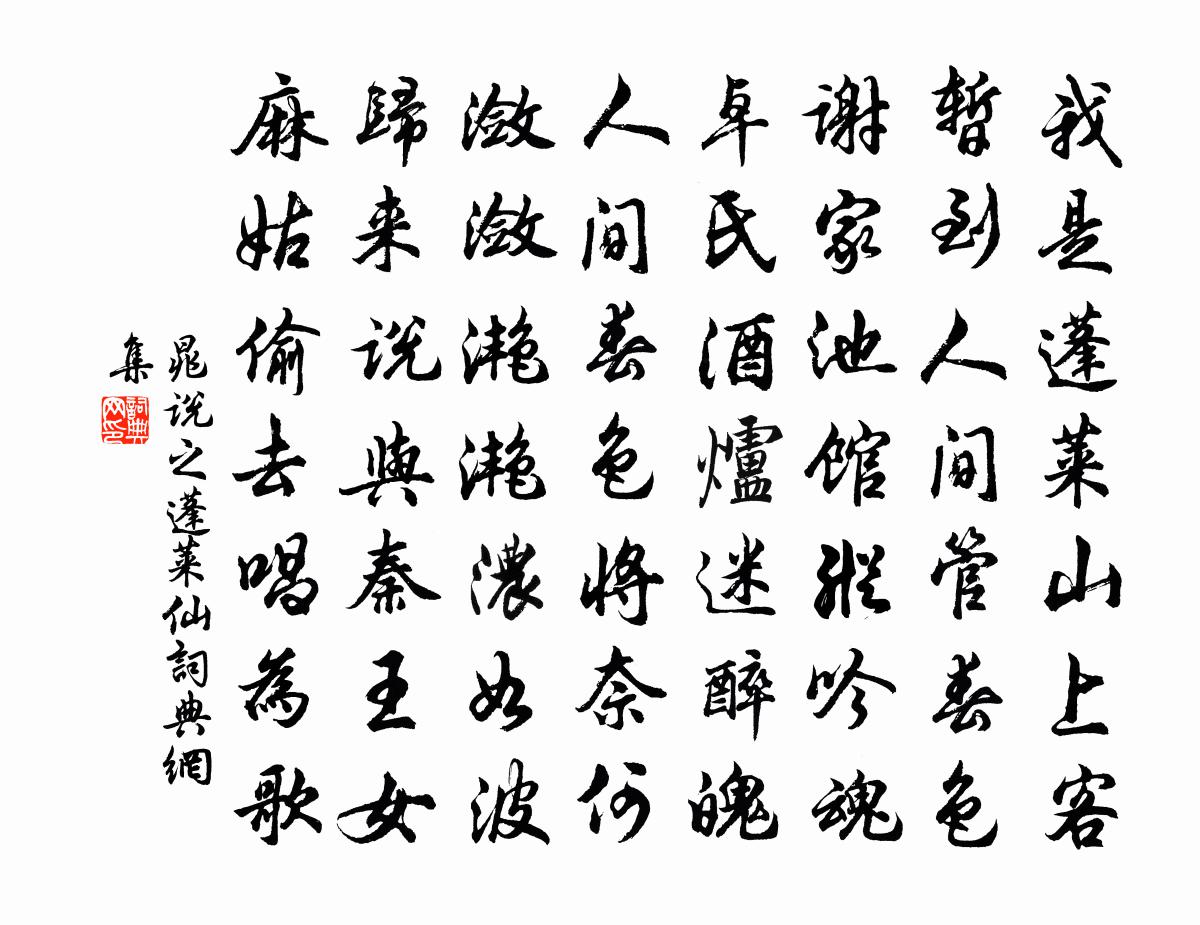 我是蓬莱山上客
暫到人间管春色
谢家池馆縱吟魂
卓氏酒爐迷醉魄
人间春色将奈何
潋潋滟滟濃如波
歸来说與秦王女
麻姑偷去唱為歌
晁说之蓬莱仙詞典網
集
詞典网印